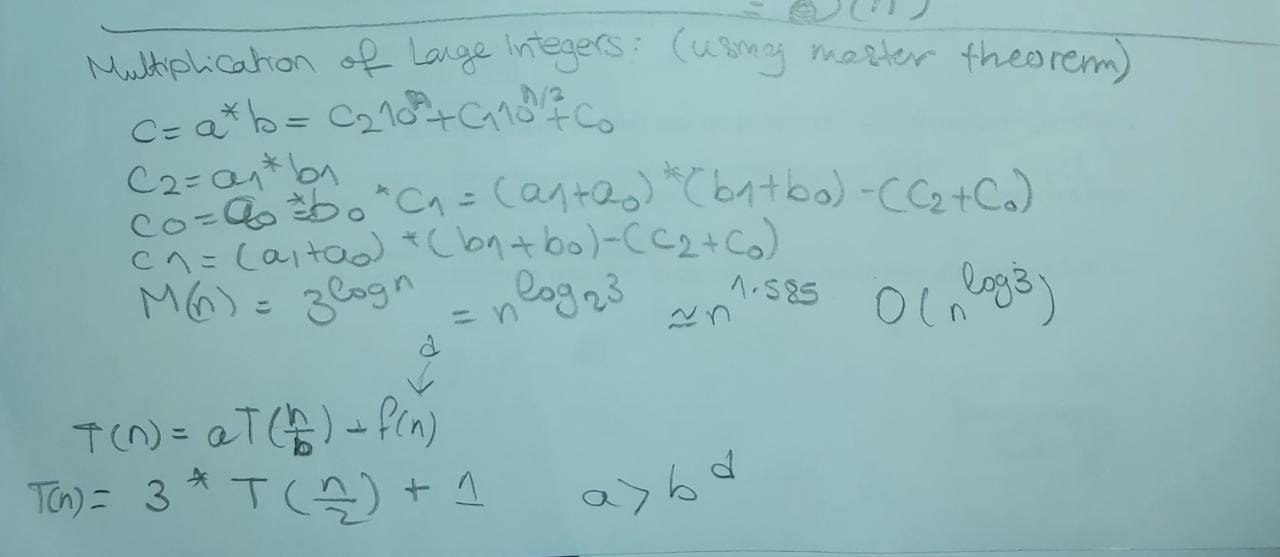 = Θ(n)
Multiplication of Large Integers: (using master theorem)
C = a * b = C₂10ⁿ + C₁10^(n/2) + C₀
C₂ = a₁ * b₁
C₀ = a₀ * b₀ * C₁ = (a₁+a₀) * (b₁+b₀) - (C₂+C₀)
C₁ = (a₁+a₀) * (b₁+b₀) - (C₂+C₀)
M(n) = 3^(log n) = n^(log₂3) ≈ n^1.585 O(n^(log 3))
d
↓
T(n) = aT(n/b) + f(n)
T(n) = 3 * T(n/2) + 1 a > b^d